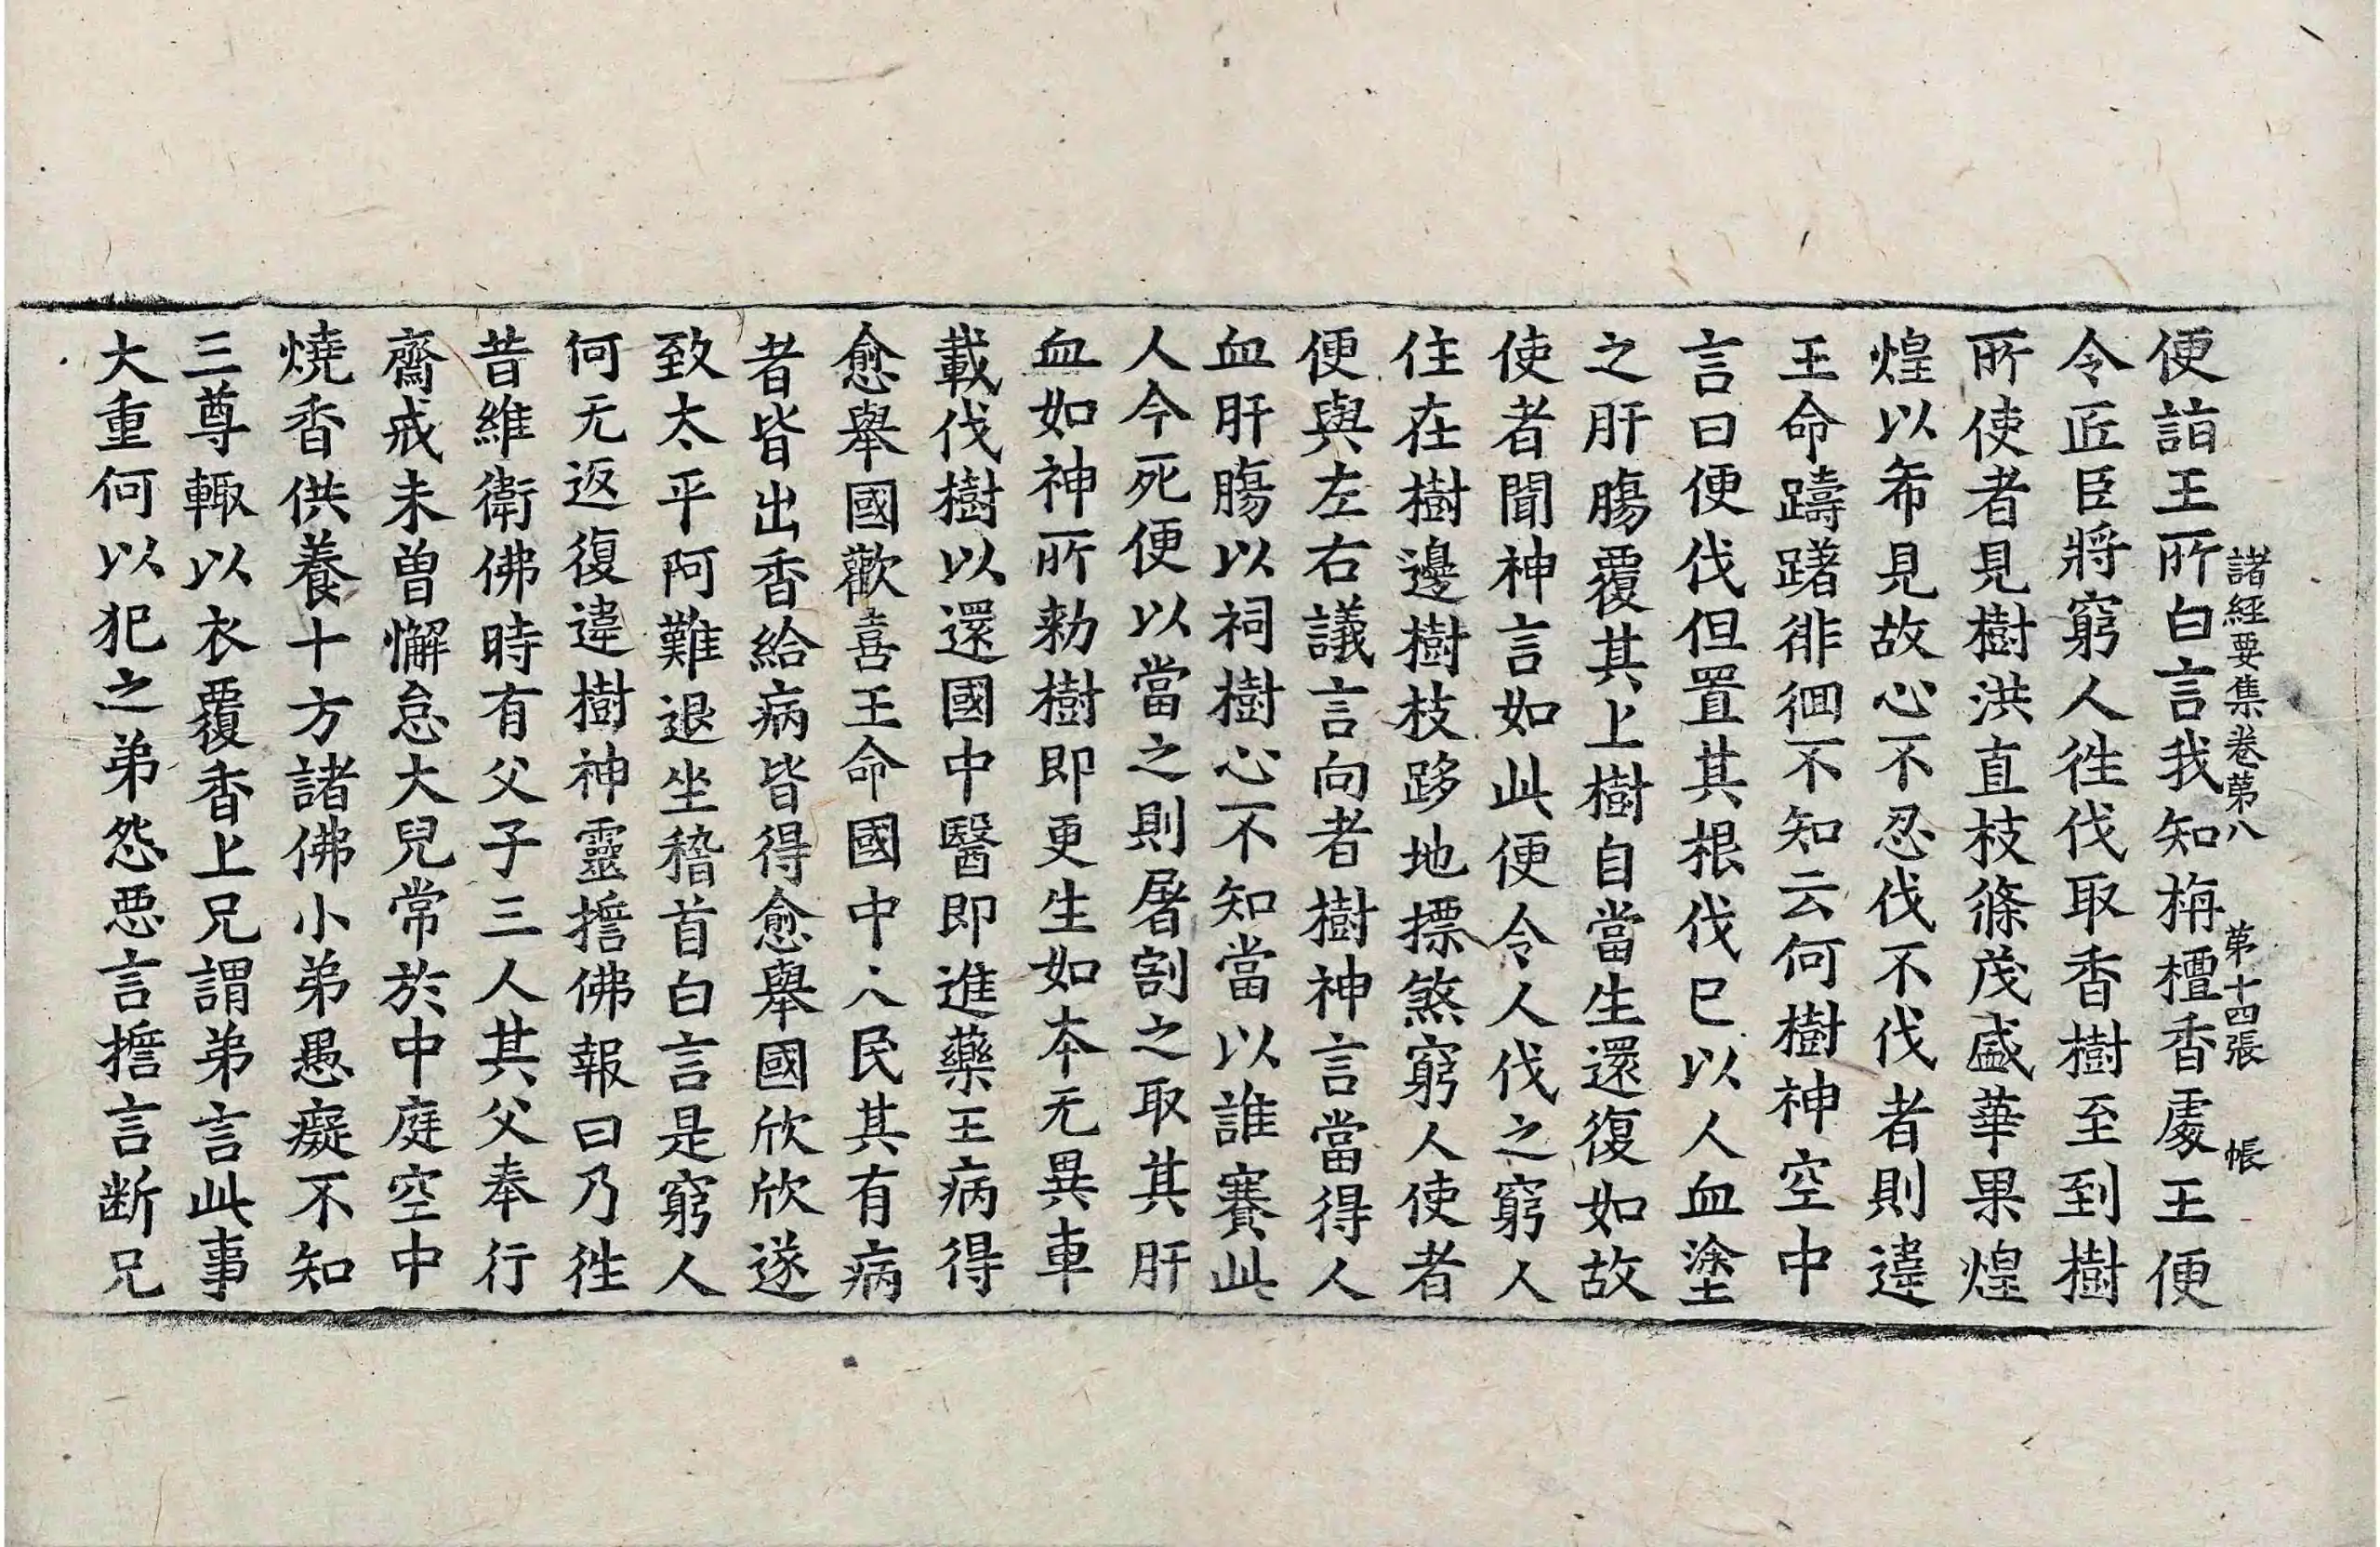 諸經要集卷第八　第十四張　帳
便詣王所白言我知栴檀香處王便
令匠臣將窮人徃伐取香樹至到樹
所使者見樹洪直枝條茂盛華果煌
煌以希見故心不忍伐不伐者則違
王命躊躇徘徊不知云何樹神空中
言曰便伐但置其根伐已以人血塗
之肝腸覆其上樹自當生還復如故
使者聞神言如此便令人伐之窮人
住在樹邊樹枝跢地摽煞窮人使者
便與左右議言向者樹神言當得人
血肝腸以祠樹心不知當以誰賽此
人今死便以當之則屠割之取其肝
血如神所勑樹即更生如本无異車
載伐樹以還國中醫即進藥王病得
愈舉國歡喜王命國中人民其有病
者皆出香給病皆得愈舉國欣欣遂
致太平阿難退坐稽首白言是窮人
何无返復違樹神靈擔佛報曰乃徃
昔維衛佛時有父子三人其父奉行
齋戒未曾懈怠大兒常於中庭空中
燒香供養十方諸佛小弟愚癡不知
三尊輙以衣覆香上兄謂弟言此事
大重何以犯之弟怨惡言擔言断兄